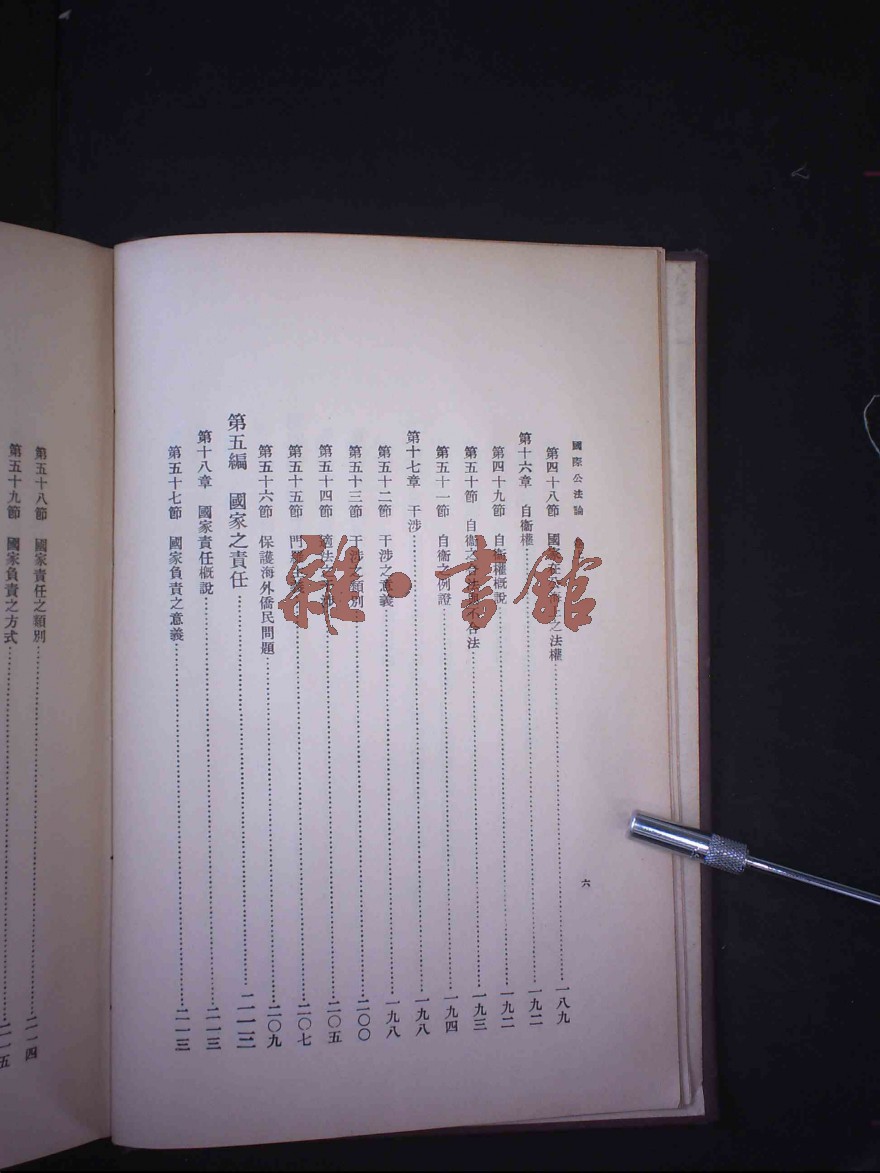 國際公法論
六
第四十八節 國家在公海上之法權……一八九
第十六章 自衞權……一九二
第四十九節 自衞權概說……一九二
第五十節 自衞之合法與不合法……一九三
第五十一節 自衞之例證……一九四
第十七章 干涉……一九八
第五十二節 干涉之意義……一九八
第五十三節 干涉之類別……二〇〇
第五十四節 適法之干涉……二〇五
第五十五節 門羅主義……二〇七
第五十六節 保護海外僑民問題……二〇九
第五編 國家之責任……二一三
第十八章 國家責任概說……二一三
第五十七節 國家負責之意義……二一三
第五十八節 國家責任之類別……二一四
第五十九節 國家負責之方式……二一五
雜·書館